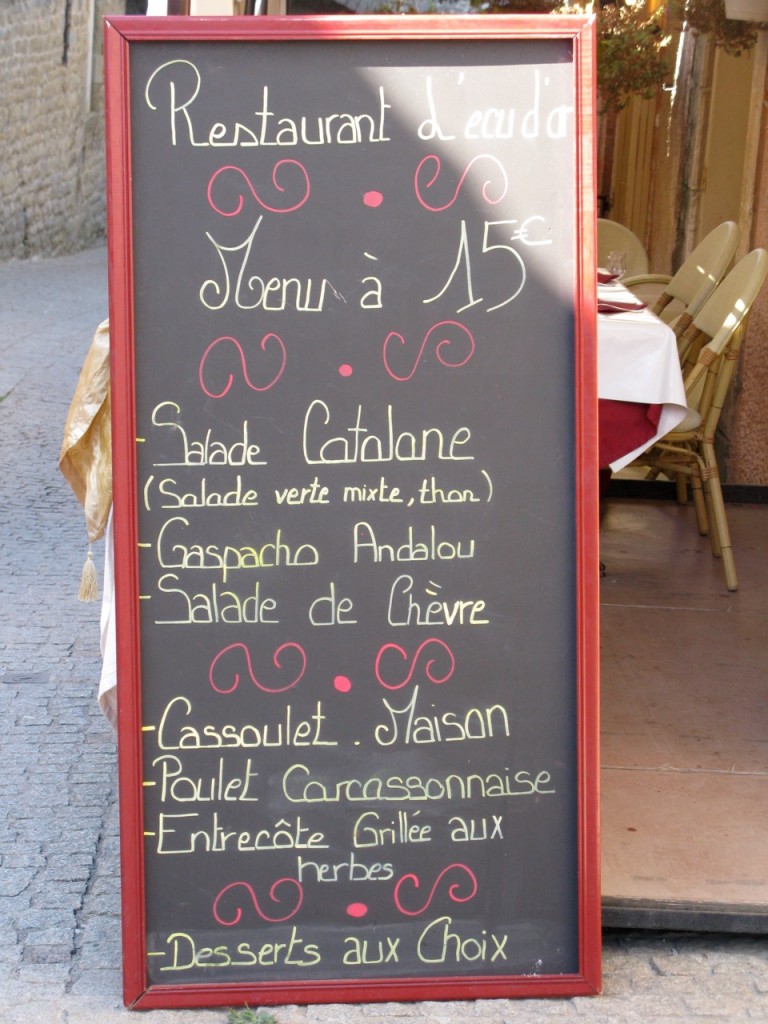 Restaurant d'ecu d'or
Menu à 15€
- Salade Catalane
(Salade verte mixte, thon)
- Gaspacho Andalou
- Salade de Chèvre
- Cassoulet . Maison
- Poulet Carcassonnaise
- Entrecôte Grillée aux
herbes
- Desserts aux Choix